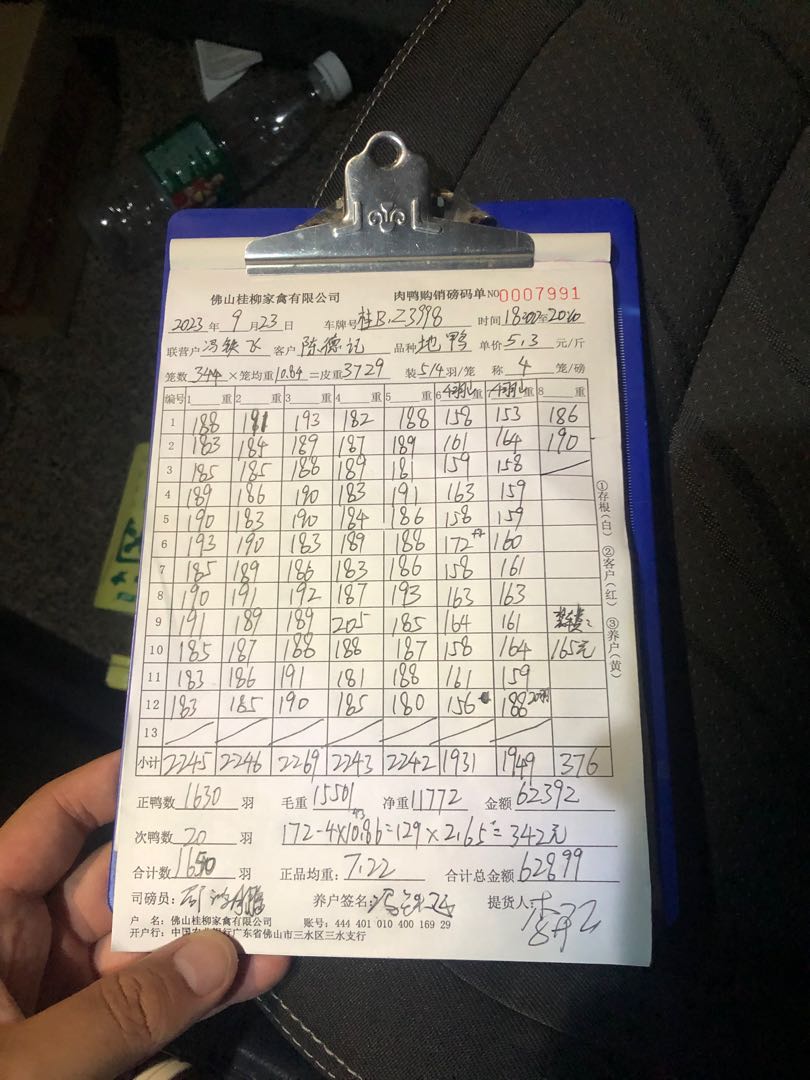 佛山桂柳家禽有限公司 肉鸭购销磅码单 NO 0007991
2023年 9月23日 车牌号 桂B.Z3998 时间 18
联营户 冯铁飞 客户 陈德记 品种 地鸭 单价 5.3 元/斤
笼数 344 ×笼均重 10.84 =皮重 3729 装 5/4 羽/笼 称 4 笼/磅
编号 1 重 2 重 3 重 4 重 5 重 6 重 7 重 8 重
1 188 191 193 182 188 158 153 186
2 183 184 189 187 189 161 164 190
3 185 185 188 189 181 159 158
4 189 186 190 183 191 163 159
5 190 183 190 184 186 158 159
6 193 190 183 189 188 172 160
7 185 189 186 183 186 158 161
8 190 191 192 187 193 163 163
9 191 189 189 205 185 164 161
10 185 187 188 188 187 158 164 165元
11 183 186 191 181 188 161 159
12 183 185 190 185 180 156 188 20羽
13
小计 2245 2246 2269 2243 2242 1931 1949 376
正鸭数 1630 羽 毛重 15501 净重 11772 金额 62392
次鸭数 20 羽 172-4×10.86=129×2.65=342元
合计数 1650 羽 正品均重: 7.22 合计总金额 62899
司磅员: 养户签名: 冯铁飞 提货人:
户 名: 佛山桂柳家禽有限公司 账号: 444 401 010 400 169 29
开户行: 中国农业银行广东省佛山市三水区三水支行
①存根(白) ②客户(红) ③养户(黄)